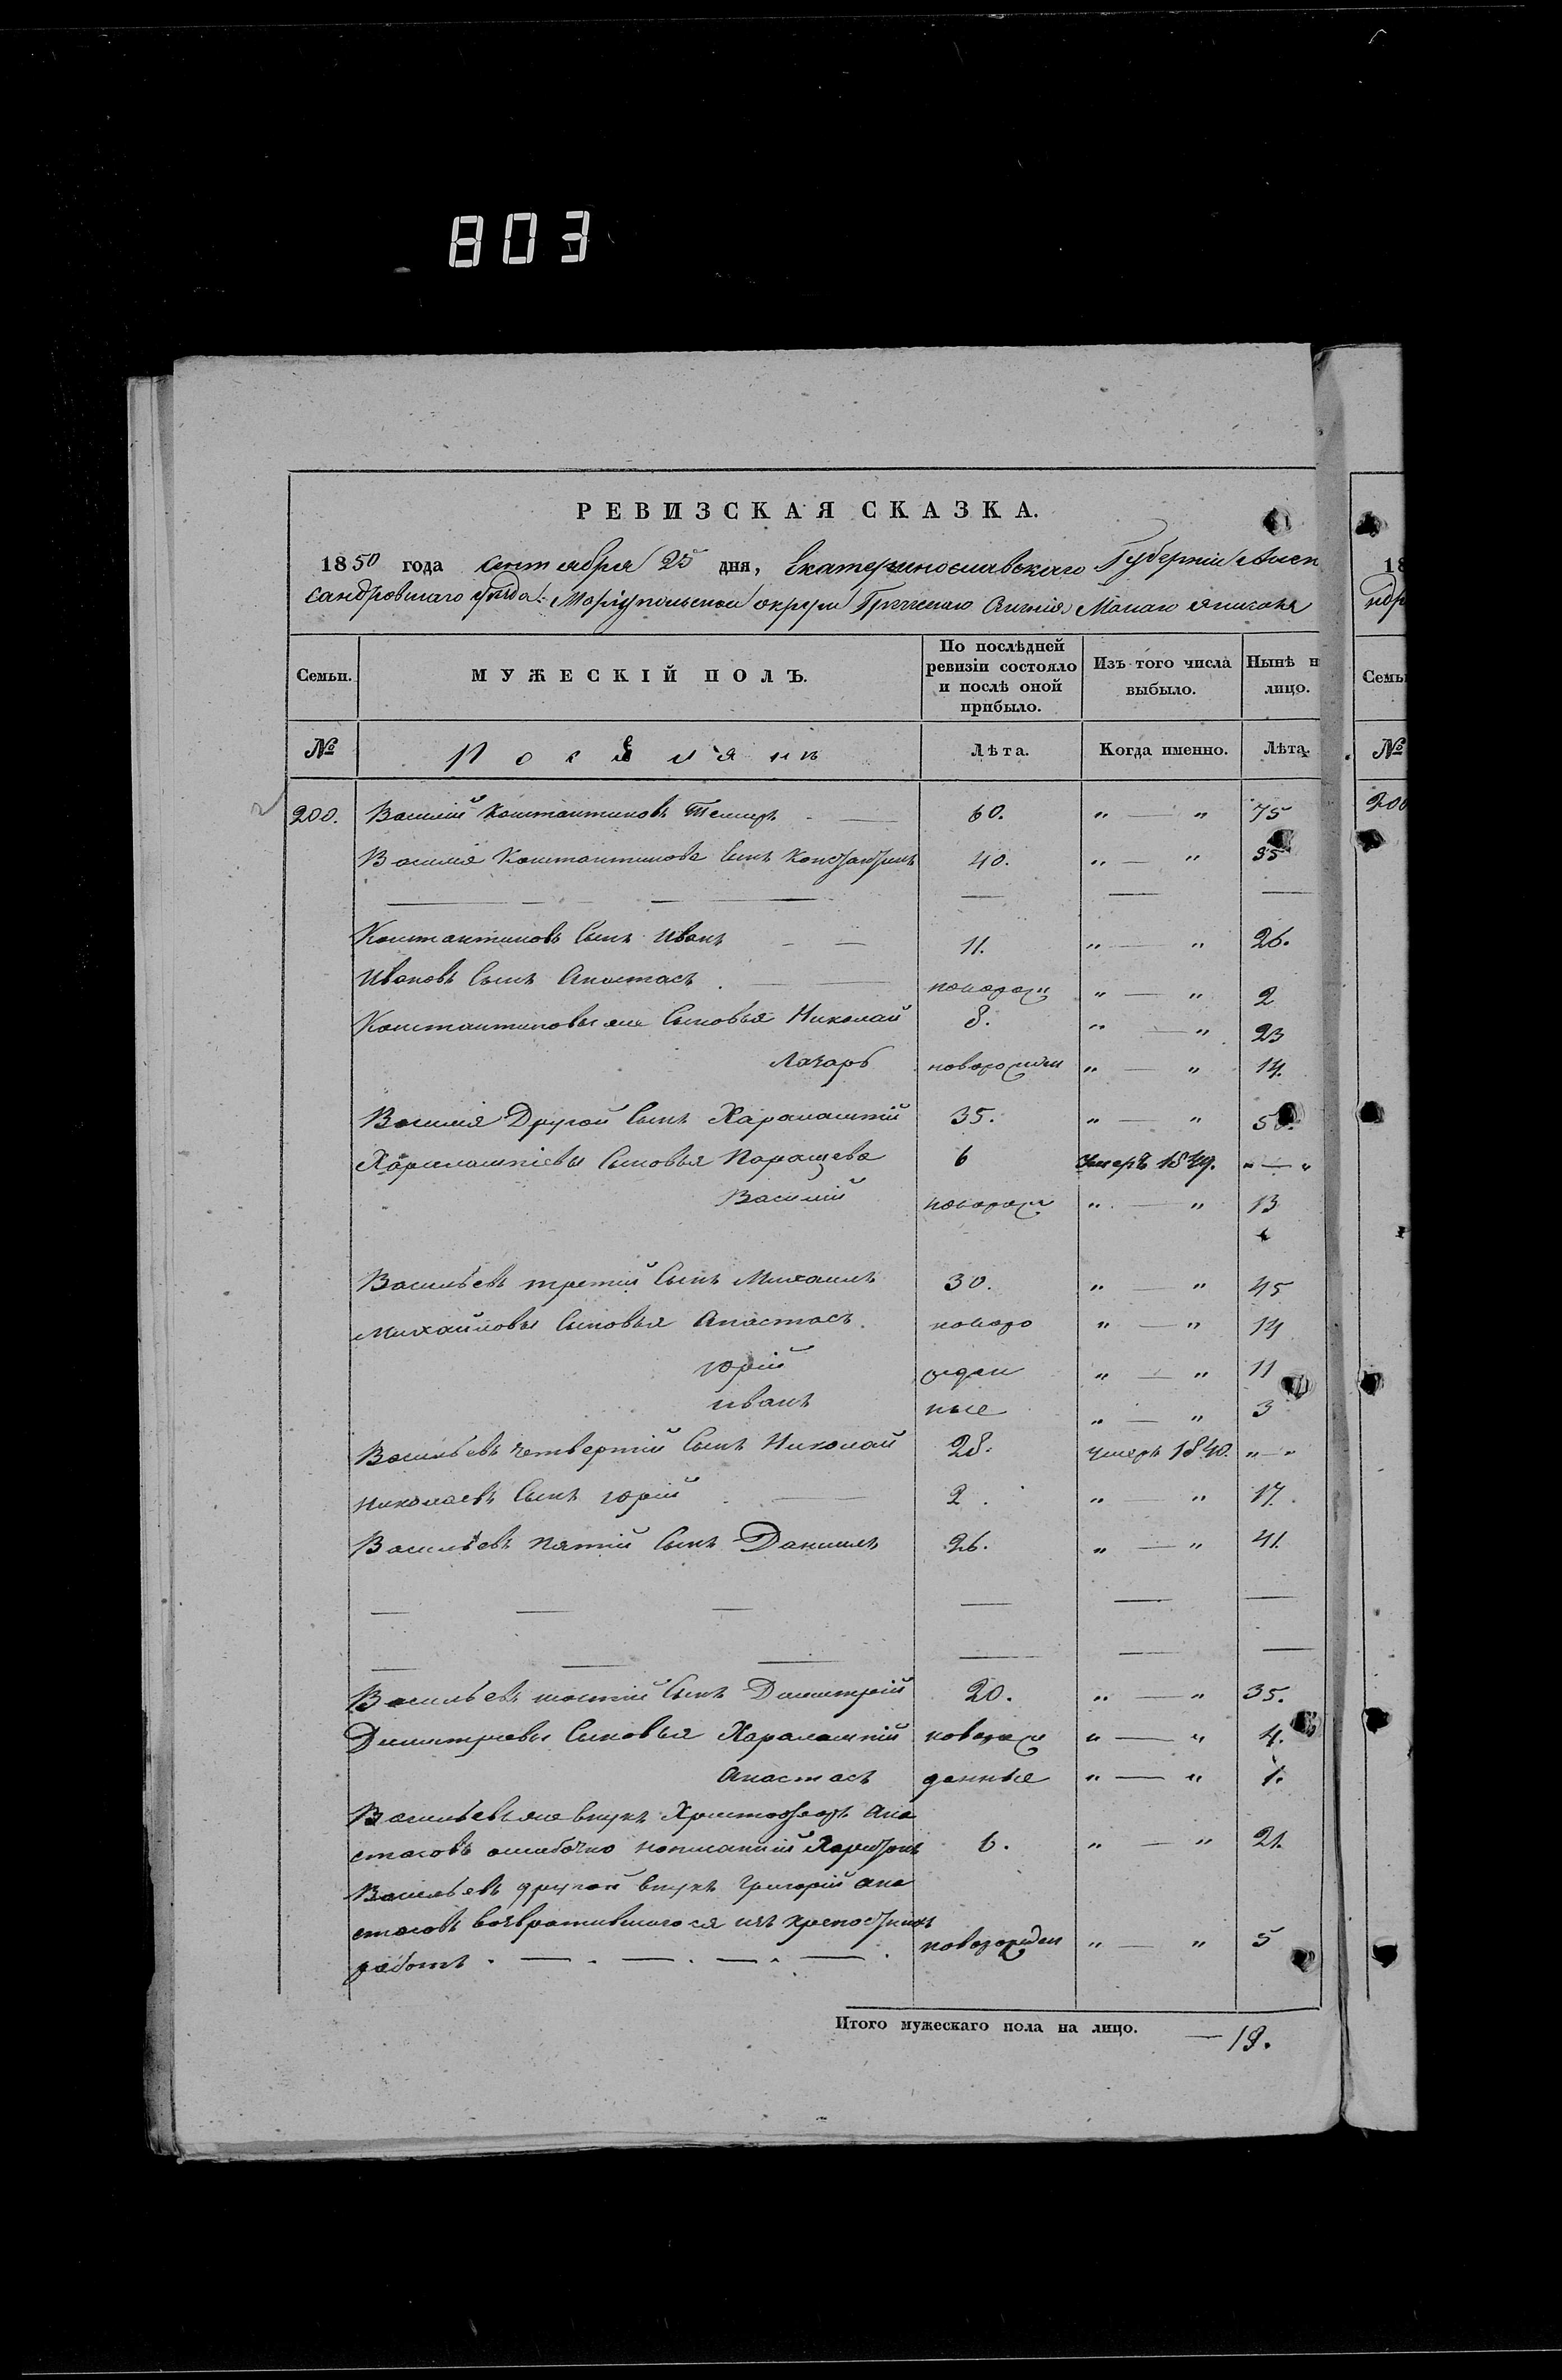 803
РЕВИЗСКАЯ СКАЗКА.
1850 года сентября 25 дня, Екатеринославскаго Губерніи Алек
сандровскаго уѣзда. Маріупольскаго округа Греческаго
Семьи. МУЖЕСКІЙ ПОЛЪ. По послѣдней ревизіи состояло и послѣ оной прибыло. Изъ того числа выбыло. Нынѣ н лицо.
№ Поселянъ Лѣта. Когда именно. Лѣта.
200. Василій Константиновъ Темиръ — 60. „ — „ 75
Василія Константинова сынъ Константинъ 40. „ — „ 55
Константиновъ сынъ Иванъ — — 11. „ — „ 26.
Ивановъ сынъ Анастасъ — — новорож „ — „ 2
Константиновы же сыновья Николай 8. „ — „ 23
Лазарь новорожден „ — „ 14.
Василія Другой сынъ Харалампій 35. „ — „ 50.
Харалампіевы сыновья Паращева 6 умеръ 1849. „ — „
Василій новорож „ — „ 13
Васильевъ третій сынъ Михаилъ 30. „ — „ 45
Михайловы сыновья Анастасъ. новоро „ — „ 14
Юрій жден „ — „ 11
Иванъ ные „ — „ 3
Васильевъ четвертій сынъ Николай 28. умеръ 1840. „ — „
Николаевъ сынъ Юрій — 2. „ — „ 17.
Васильевъ пятій сынъ Данилъ 26. „ — „ 41.
Васильевъ шостій сынъ Димитрій 20. „ — „ 35.
Димитріевы сыновья Харалампій коворож „ — „ 4.
Анастасъ денные „ — „ 1.
Васильевъ же внукъ Христофоръ Ана
стасовъ ошибочно написанній Харитонъ 6. „ — „ 21.
Васильевъ другой внукъ Григорій Ана
стасовъ возвратившагося изъ крепостныхъ
работъ. — . — . — . — . новорожден „ — „ 5
Итого мужескаго пола на лицо. — 19.
18
ндр
Семь
№
200